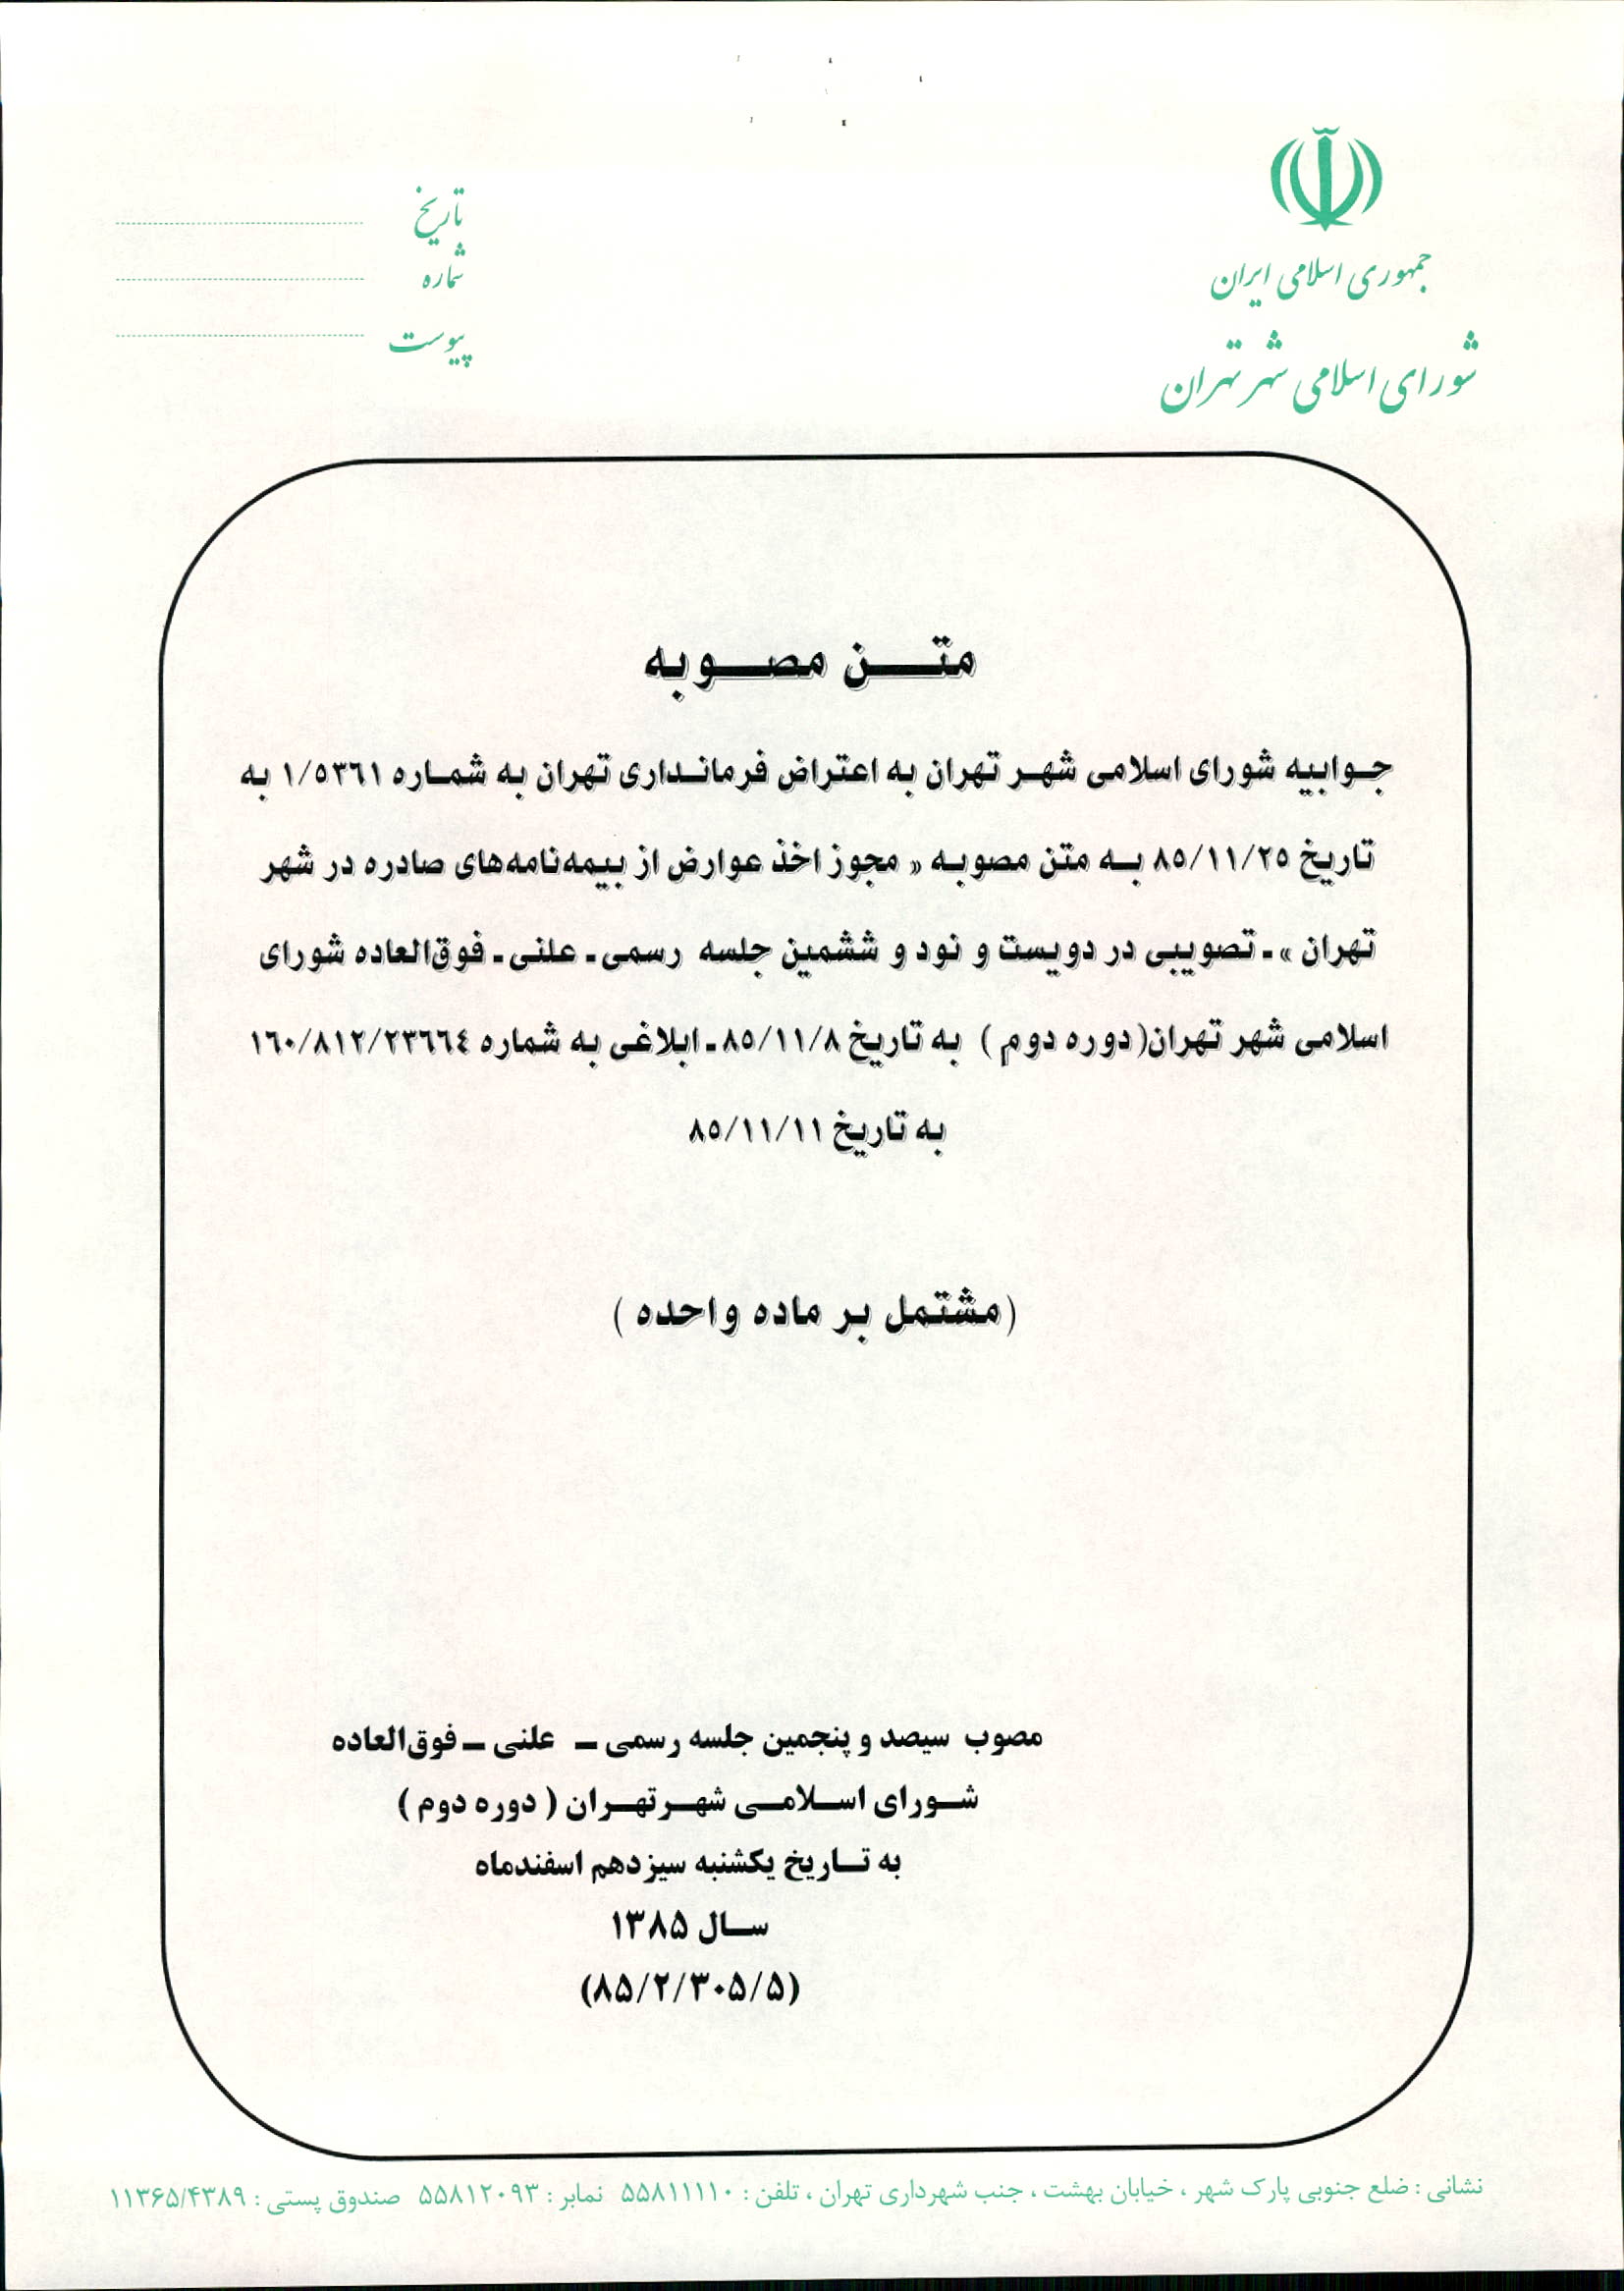 جمهوری اسلامی ایران
شورای اسلامی شهر تهران
تاریخ
شماره
پیوست
متن مصوبه
جوابیه شورای اسلامی شهر تهران به اعتراض فرمانداری تهران به شماره ۱/۵۳۶۱ به
تاریخ ۸۵/۱۱/۲۵ به متن مصوبه « مجوز اخذ عوارض از بیمه‌نامه‌های صادره در شهر
تهران » ـ تصویبی در دویست و نود و ششمین جلسه رسمی ـ علنی ـ فوق‌العاده شورای
اسلامی شهر تهران(دوره دوم ) به تاریخ ۸۵/۱۱/۸ ـ ابلاغی به شماره ۱۶۰/۸۱۲/۲۳۶۶۴
به تاریخ ۸۵/۱۱/۱۱
(مشتمل بر ماده واحده )
مصوب سیصد و پنجمین جلسه رسمی ـ علنی ـ فوق‌العاده
شورای اسلامی شهر تهران ( دوره دوم )
به تاریخ یکشنبه سیزدهم اسفندماه
سال ۱۳۸۵
(۸۵/۲/۳۰۵/۵)
نشانی : ضلع جنوبی پارک شهر ، خیابان بهشت ، جنب شهرداری تهران ، تلفن : ۵۵۸۱۱۱۱۰ نمابر : ۵۵۸۱۲۰۹۳ صندوق پستی : ۱۱۳۶۵/۴۳۸۹